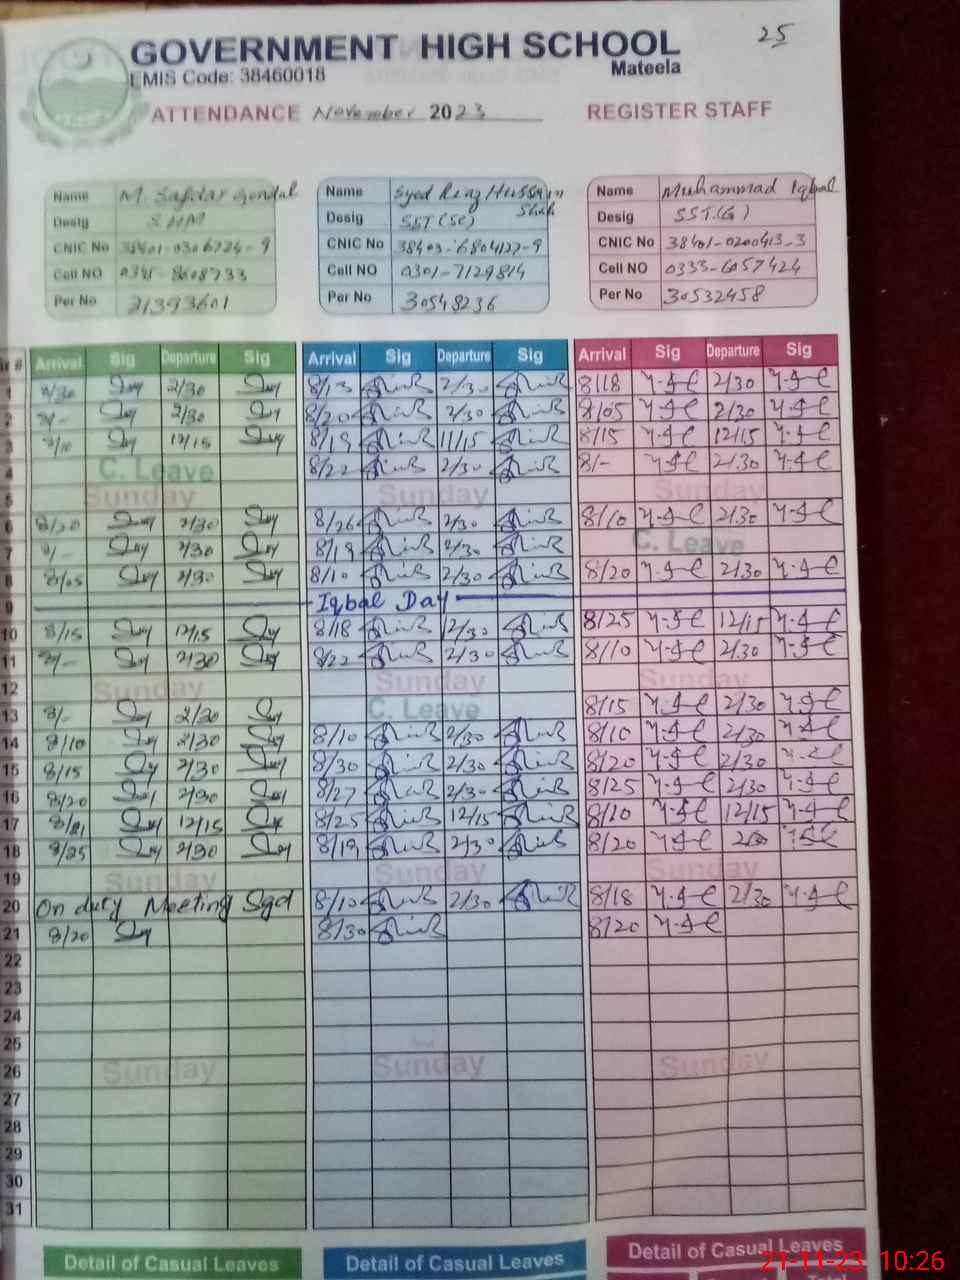 25
GOVERNMENT HIGH SCHOOL
EMIS Code: 38460018 Mateela
ATTENDANCE November 2023 REGISTER STAFF
Name M. Safdar Gondal Name Syed Riaz Hussain Shah Name Muhammad Iqbal
Desig SHM Desig SST (SC) Desig SST.(G)
CNIC No CNIC No 38403-6804127-9 CNIC No 38401-0200413-3
Cell NO Cell NO 0301-7129814 Cell NO 0333-6057424
Per No 21393601 Per No 30548236 Per No 30532458
Arrival Sig Departure Sig Arrival Sig Departure Sig Arrival Sig Departure Sig
1 8/30 2/30 8/13 2/30 8/18 2/30
2 8/- 2/30 8/20 2/30 8/05 2/30
3 8/10 12/15 8/19 11/15 8/15 12/15
4 C. Leave 8/22 2/30 8/- 2/30
5 Sunday Sunday Sunday
6 8/20 2/30 8/26 2/30 8/10 2/30
7 8/- 2/30 8/19 2/30 C. Leave
8 8/05 2/30 8/10 2/30 8/20 2/30
9 Iqbal Day
10 8/15 12/15 8/18 12/30 8/25 12/15
11 8/- 2/30 8/22 2/30 8/10 2/30
12 Sunday Sunday Sunday
13 8/- 2/30 C. Leave 8/15 2/30
14 8/10 2/30 8/10 2/30 8/10 2/30
15 8/15 2/30 8/30 2/30 8/20 2/30
16 8/20 2/30 8/27 2/30 8/25 2/30
17 12/15 8/25 12/15 8/10 12/15
18 8/25 2/30 8/19 2/30 8/20 2/30
19 Sunday Sunday Sunday
20 On duty Meeting Sgd 8/10 2/30 8/18 2/30
21 8/20 8/30 8/20
22
23
24
25
26 Sunday Sunday Sunday
27
28
29
30
31
Detail of Casual Leaves Detail of Casual Leaves Detail of Casual Leaves
21-11-23 10:26